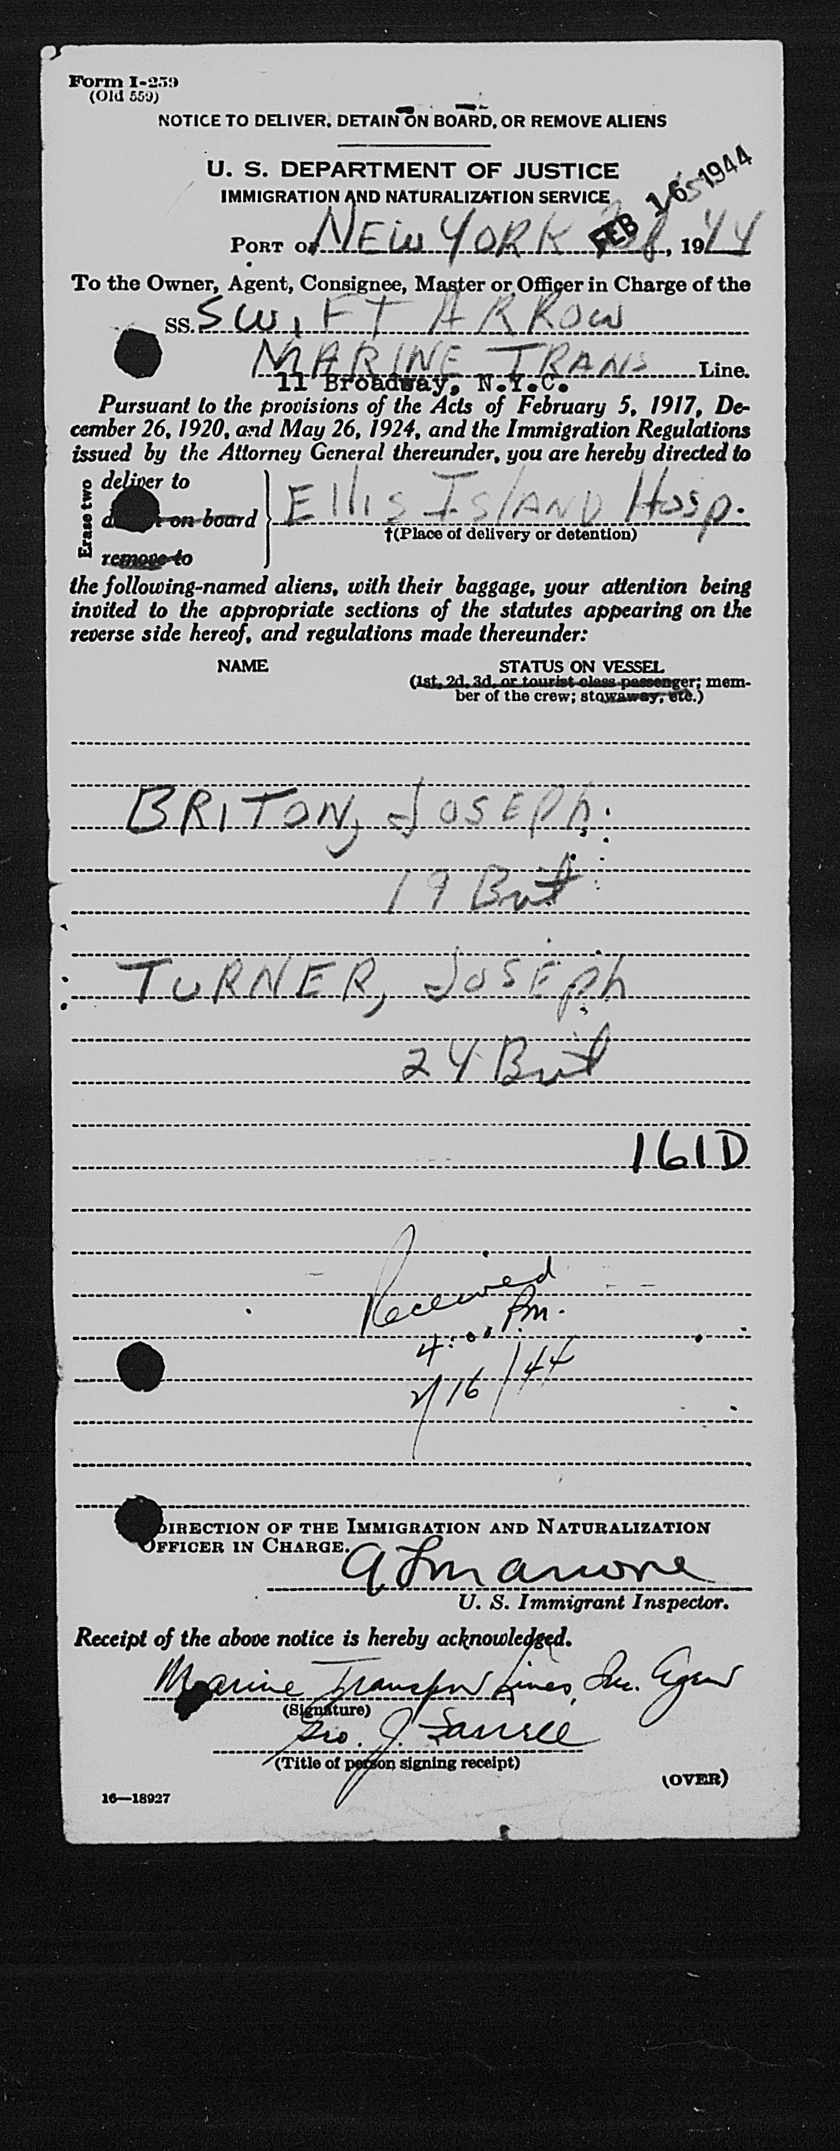 Form I-259
(Old 559)
NOTICE TO DELIVER, DETAIN ON BOARD, OR REMOVE ALIENS
U. S. DEPARTMENT OF JUSTICE
IMMIGRATION AND NATURALIZATION SERVICE
FEB 16 1944
PORT OF NEW YORK Feb, 1944
To the Owner, Agent, Consignee, Master or Officer in Charge of the
SS. SWIFT ARROW
MARINE TRANS Line.
11 Broadway, N.Y.C.
Pursuant to the provisions of the Acts of February 5, 1917, De-
cember 26, 1920, and May 26, 1924, and the Immigration Regulations
issued by the Attorney General thereunder, you are hereby directed to
Erase two
deliver to
on board
remove to
Ellis Island Hosp.
†(Place of delivery or detention)
the following-named aliens, with their baggage, your attention being
invited to the appropriate sections of the statutes appearing on the
reverse side hereof, and regulations made thereunder:
NAME STATUS ON VESSEL
(1st, 2d, 3d, or tourist class passenger; mem-
ber of the crew; stowaway, etc.)
BRITON, JOSEPH.
19 Brit
TURNER, JOSEPH
24 Brit
161D
Received
4:00 Pm.
2/16/44
DIRECTION OF THE IMMIGRATION AND NATURALIZATION
OFFICER IN CHARGE.
U. S. Immigrant Inspector.
Receipt of the above notice is hereby acknowledged.
Marine Transport Lines, Inc. Agent
(Signature)
Geo. J. Farrell
(Title of person signing receipt)
(OVER)
16—18927